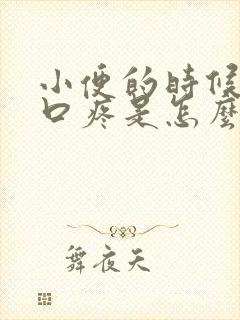 小便的時候
口疼是怎麼
舞夜天